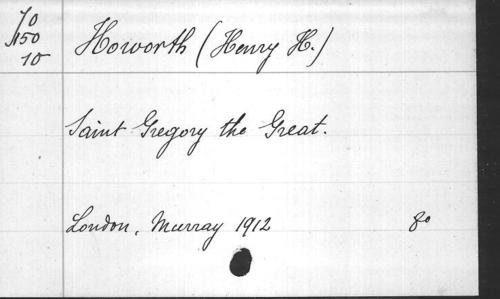 70
150
10
Howorth (Henry H.)
Saint Gregory the Great.
London, Murray 1912 8o